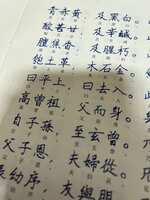 青赤黃，及黑白，
酸苦甘，及辛鹹，
膻焦香，及腥朽，
匏土革，木石金，
曰平上，曰去入，
高曾祖，父而身，
自子孫，至玄曾，
父子恩，夫婦從，
長幼序，友與朋